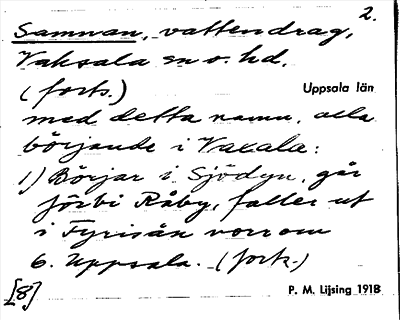 2.
Samnan, vattendrag,
Vaksala sn o. hd.
(forts.)
Uppsala län
med detta namn, alla
började i Vaxala:
1) Börjar i Sjödyn, går
förbi Råby, faller ut
i Fyrisån norr om
G. Uppsala. (forts.)
[8]
P. M. Lijsing 1918